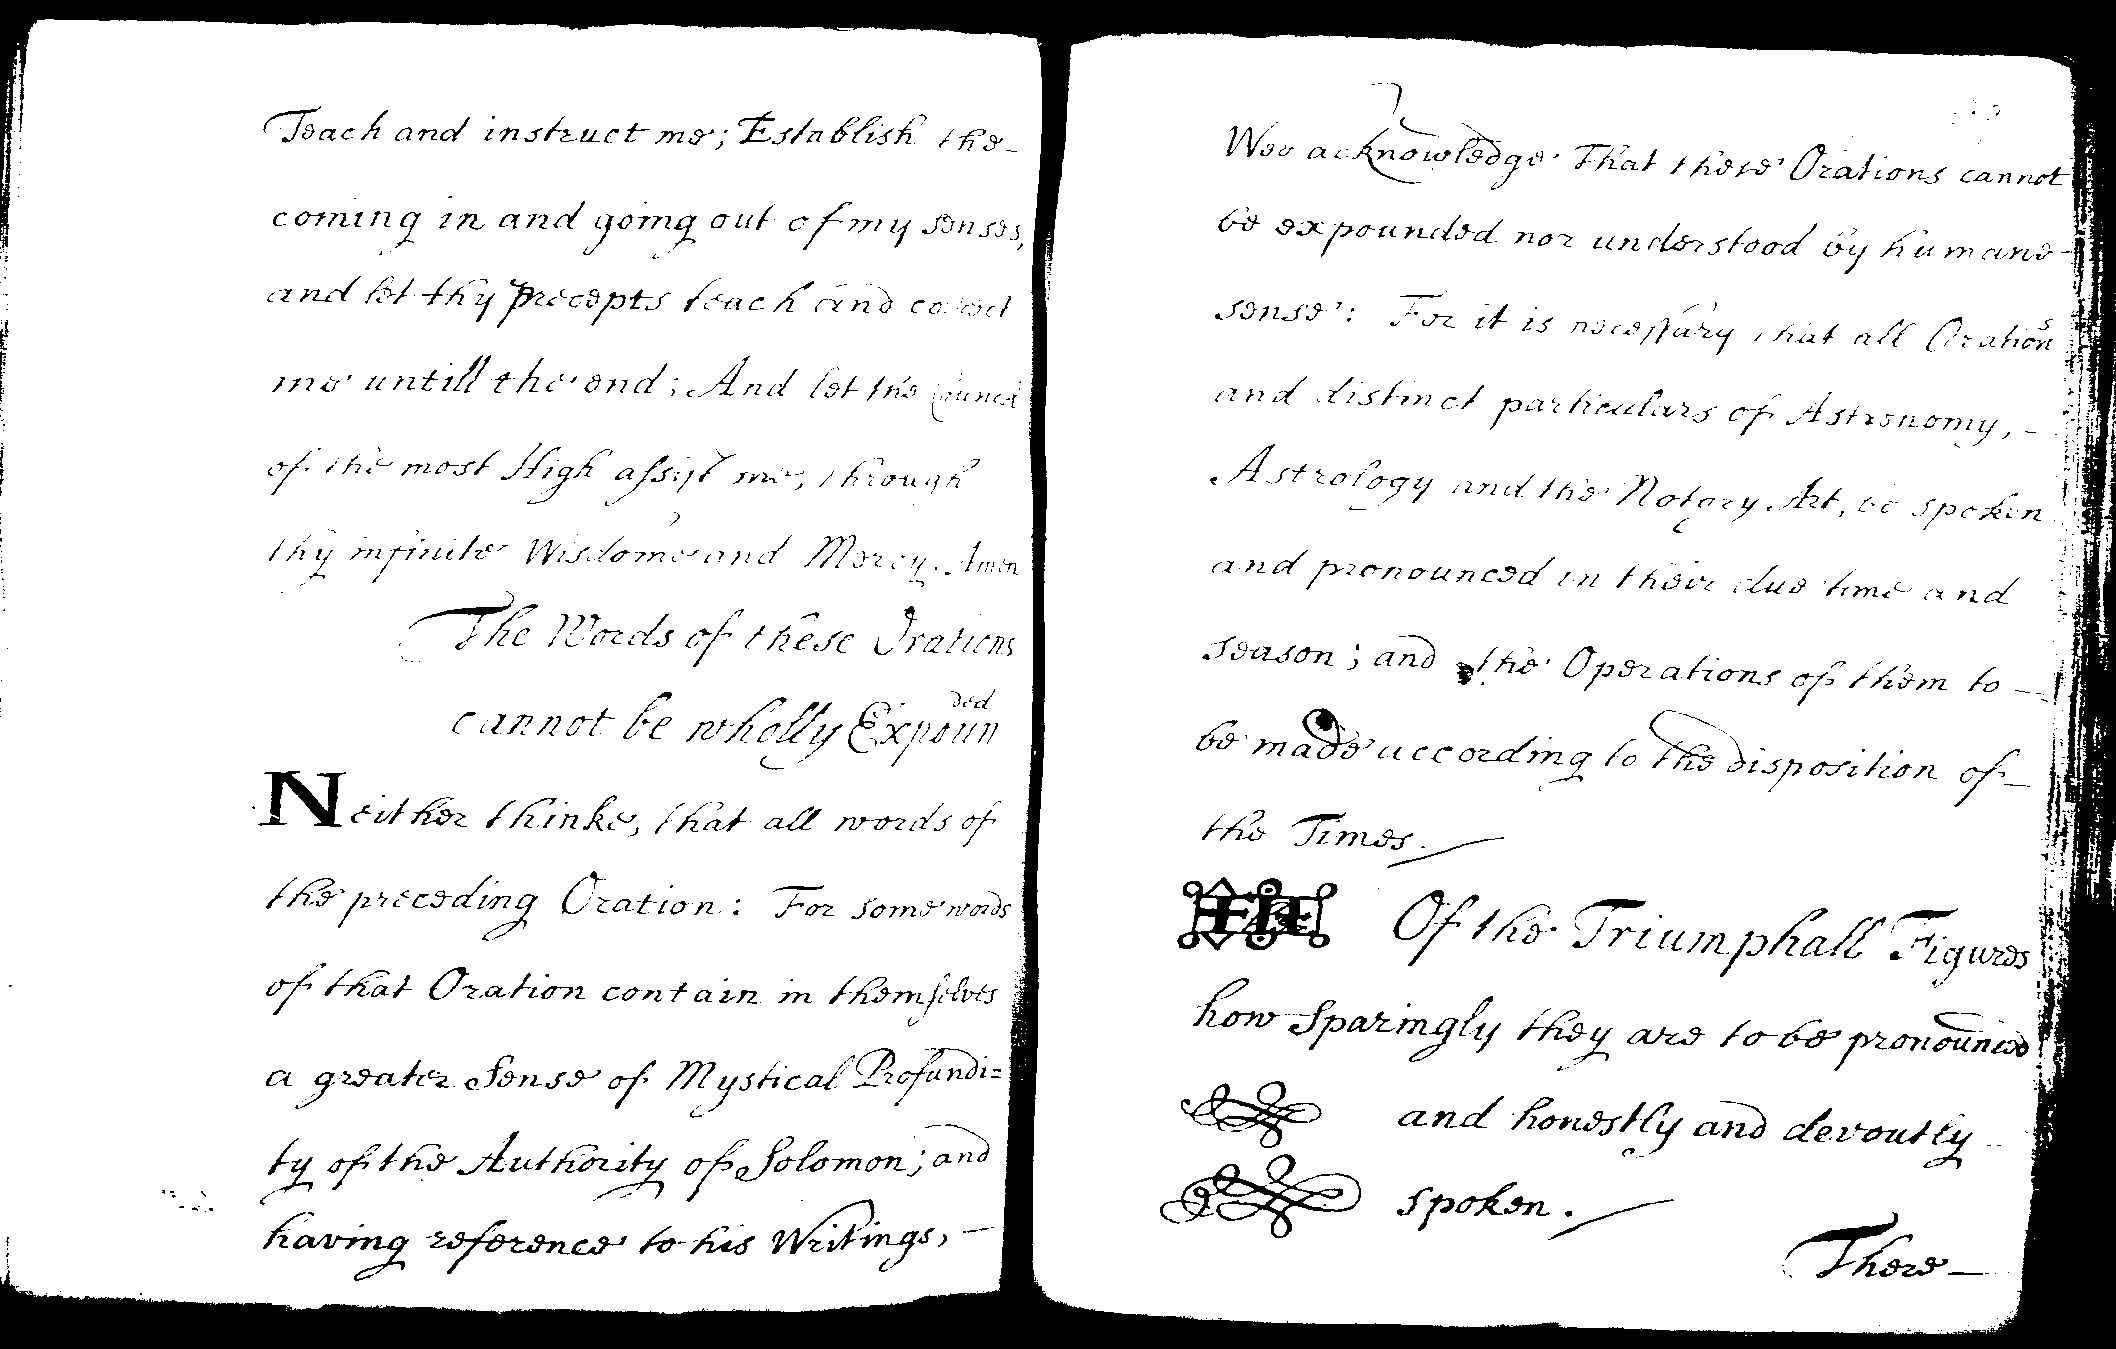 Teach and instruct me; Establish the-
coming in and going out of my senses,
and let thy precepts teach and correct
me untill the end; And let the Councel
of the most High assist me, through
thy infinite Wisdome and Mercy. Amen
The Words of these Orations
cannot be wholly Expounded
Neither thinke, that all words of
the preceding Oration: For some words
of that Oration contain in themselves
a greater Sense of Mystical Profundi=
ty of the Authority of Solomon; and
having reference to his Writings, -
Wee acknowledge That these Orations cannot
be expounded nor understood by humane-
sense: For it is necessary that all Orations
and distinct particulars of Astronomy, -
Astrology and the Notary Art, be spoken
and pronounced in their due time and
season; and the Operations of them to -
be made according to the disposition of-
the Times.
Of the Triumphall Figures
how Sparingly they are to be pronounced
and honestly and devoutly
spoken.
There-